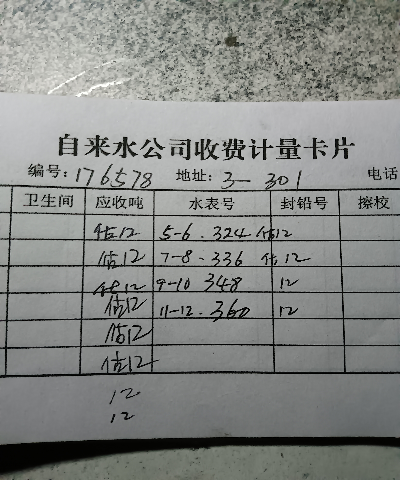 自来水公司收费计量卡片
编号: 176578 地址: 3-301 电话
卫生间 应收吨 水表号 封铅号 擦校
估12 5-6.324 估12
估12 7-8.336 估12
估12 9-10 348 12
估12 11-12.360 12
估12
估12
12
12